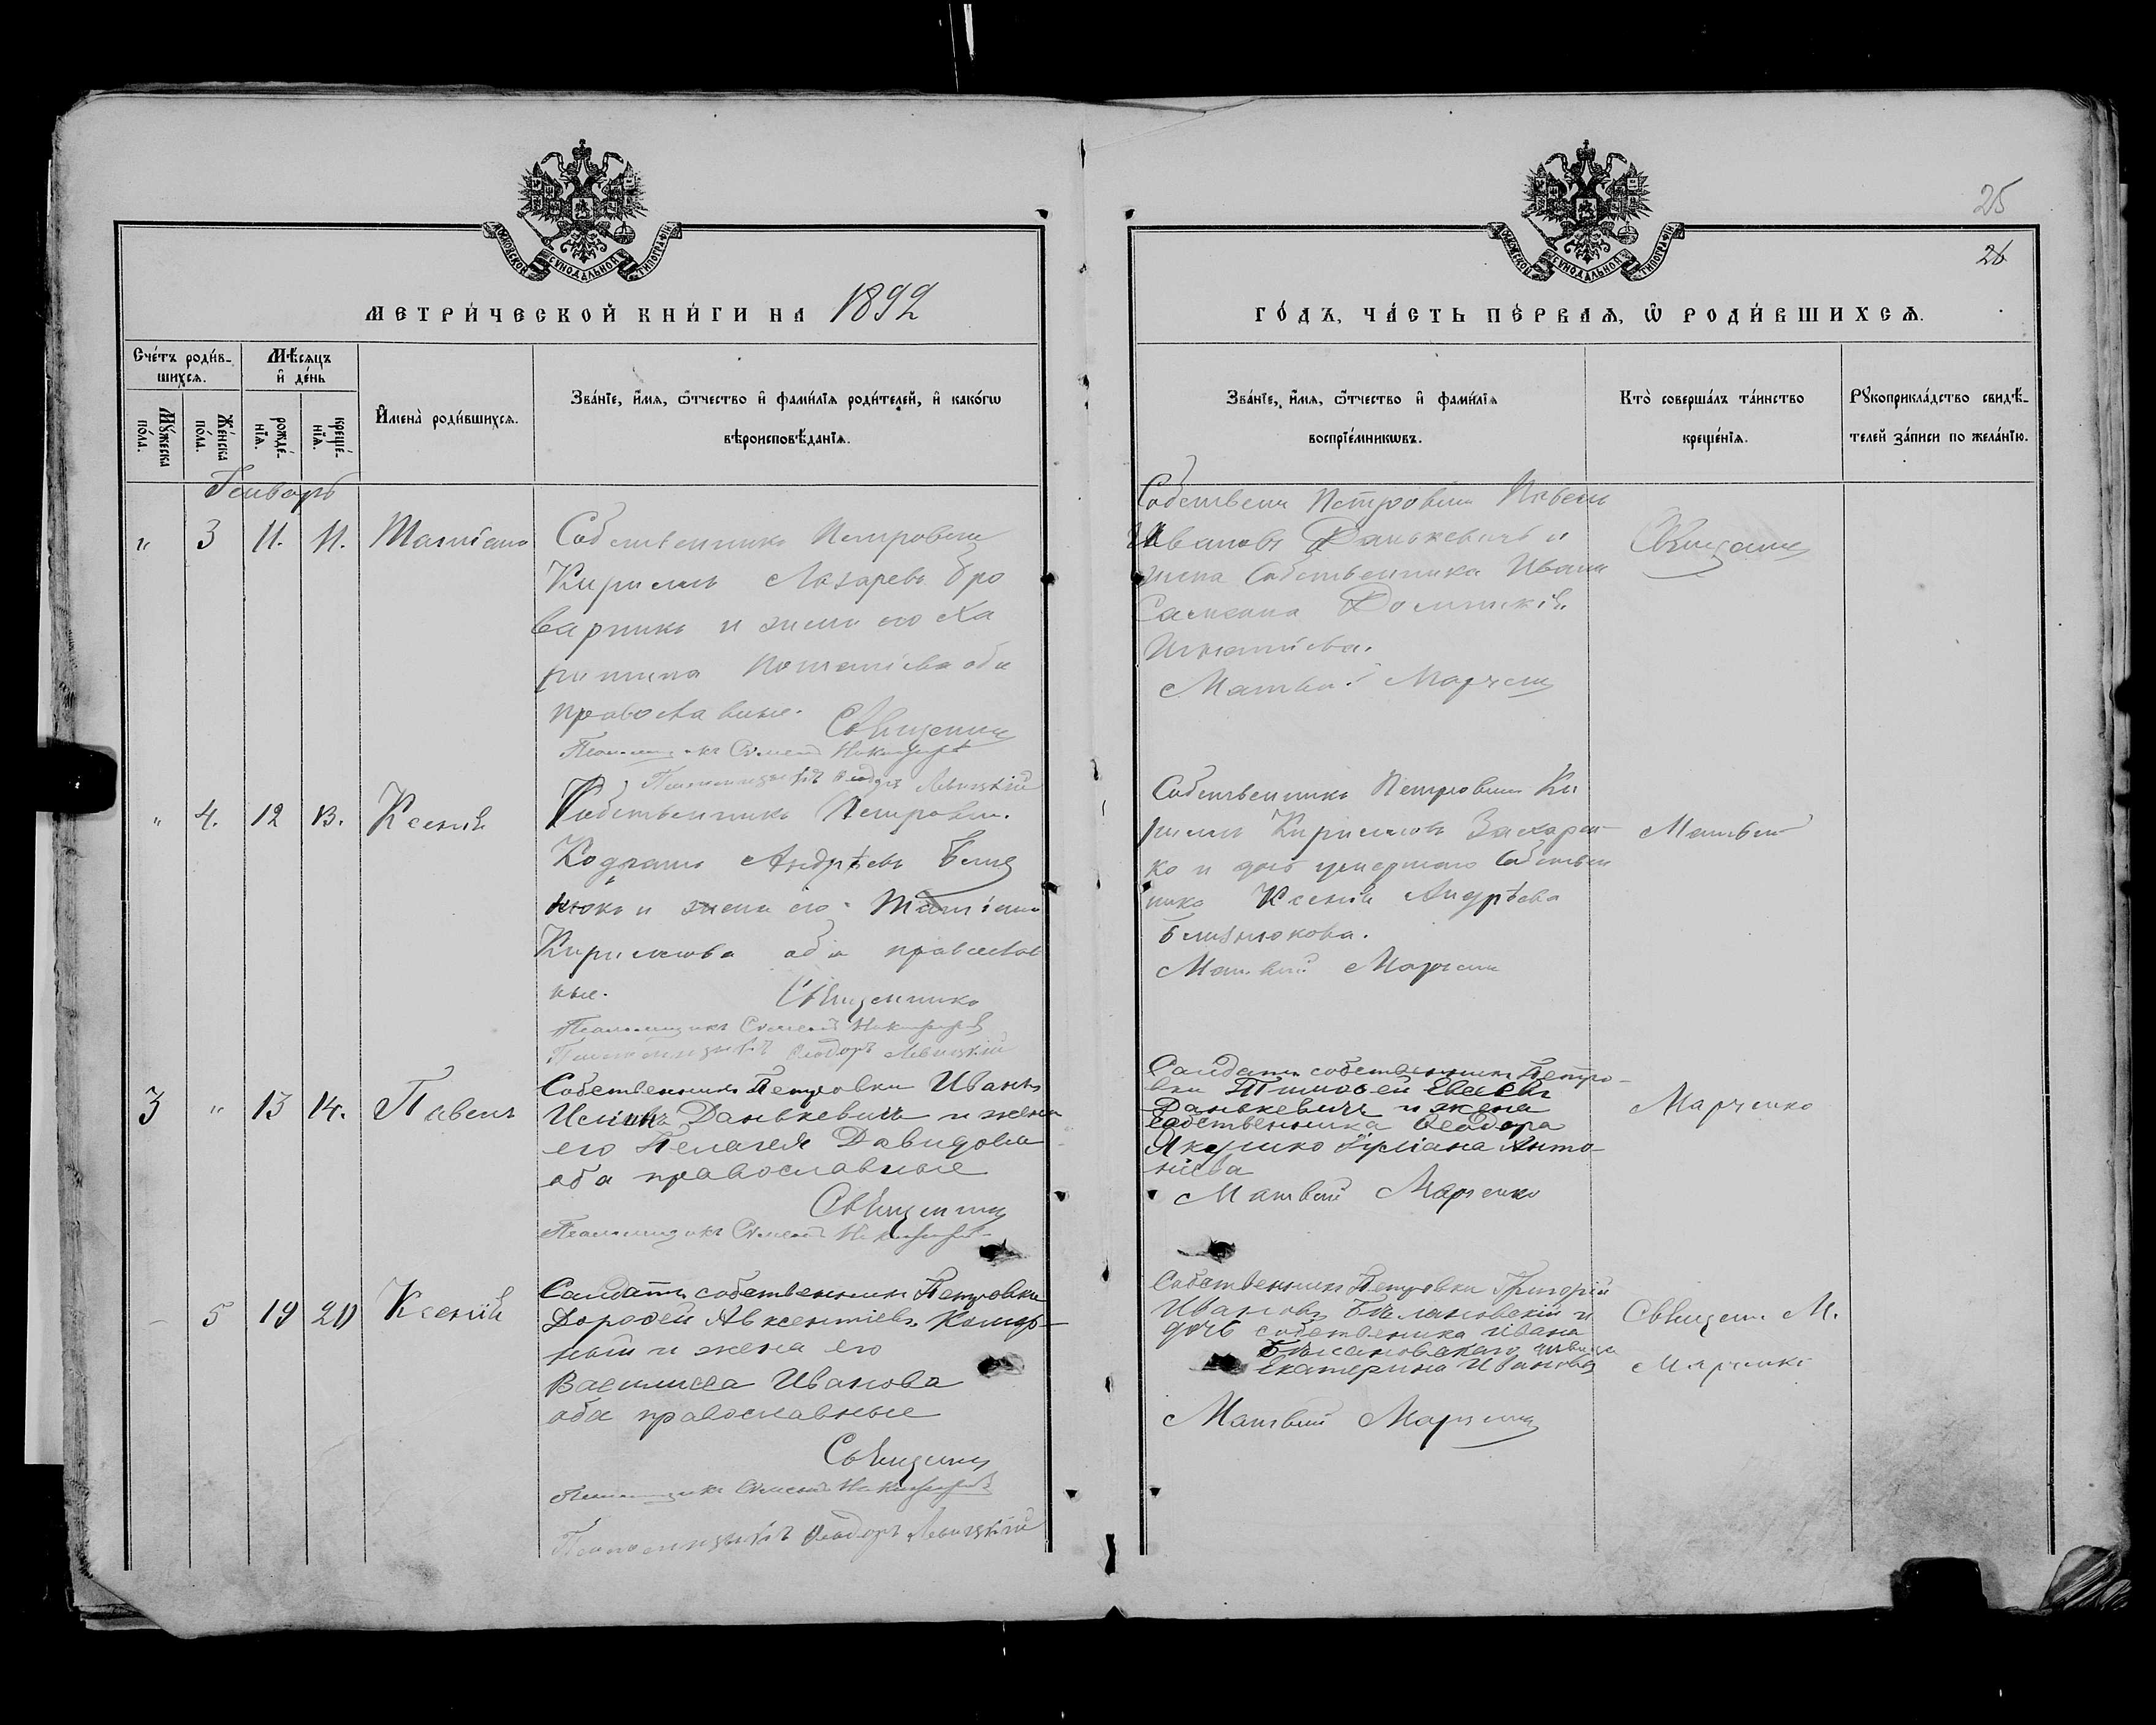 25
26
МОСКОВСКОЙ СѴНОДАЛЬНОЙ ТИПОГРАФІИ
МОСКОВСКОЙ СѴНОДАЛЬНОЙ ТИПОГРАФІИ
МЕТРИ́ЧЕСКОЙ КНИ́ГИ НА 1892
ГО́ДЪ, ЧА́СТЬ ПЕ́РВАѦ, Ѡ҆ РОДИ́ВШИХСѦ.
Сче́тъ роди́в-
шихсѧ.
Мѣ́сѧцъ
и҆ де́нь
Мꙋ́жеска
по́ла.
Же́нска
по́ла.
рожде́-
нїѧ.
креще́-
нїѧ.
И҆мена̀ роди́вшихсѧ.
Зва́нїе, и҆́мѧ, ѻ҆́тчество и҆ фами́лїѧ роди́телей, и҆ како́гѡ
вѣроисповѣ́данїѧ.
Зва́нїе, и҆́мѧ, ѻ҆́тчество и҆ фами́лїѧ
воспрїе́мникѡвъ.
Кто̀ соверша́лъ та́инство
креще́нїѧ.
Рꙋкоприкла́дство свидѣ́-
телей за́писи по жела́нїю.
Генварь
„ 3 11. 11. Татіана
Собственникъ Петровки
Кириллъ Лазаревъ Бро
варникъ и жена его Ха
ритина Потапіева оба
православные.
Священни
Псаломщикъ Симеонъ Никифоровъ
Псаломщикъ Ѳеодоръ Левицкій
Собственн Петровки Павелъ
Ивановъ Данькевичъ и
жена Собственника Ивана
Домникія
Игнатіева.
Матвей Марченк
Священни
„ 4. 12 13. Ксенія
Собственникъ Петровки.
Кодратъ Андрѣевъ Близ
нюкъ и жена его Татіана
Кириллова оба православ
ные.
Священнико
Псаломщикъ Симеонъ Никифоровъ
Псаломщикъ Ѳеодоръ Левицкій
Собственникъ Петровки Ки
риллъ Кирилловъ Захарен
ко и дочь умершаго Собствен
ника Ксенія Андрѣева
Близнюкова.
Матвей Марченк
Матвей
3 „ 13 14. Павелъ
Собственникъ Петровки Иванъ
Данькевичъ и жена
его Пелагея Давидова
оба православные
Священни
Псаломщикъ Симеонъ Никифоровъ
Солдатъ собственникъ Петро-
вки Тимоѳей
Данькевичъ и жена
собственника Ѳеодора
Якушко Іуліана Анто-
ніева
Матвей Марченко
Марченко
- 5 19 20 Ксенія
Солдатъ собственникъ Петровки
Дороѳей Авксентіевъ
и жена его
Василисса Иванова
оба православные
Священни
Псаломщикъ Симеонъ Никифоровъ
Псаломщикъ Ѳеодоръ Левицкій
Собственникъ Петровки Григорій
Ивановъ и
дочь собственника Ивана
девица
Екатерина Иванова
Матвей Марченк
Священ. М.
Марченко